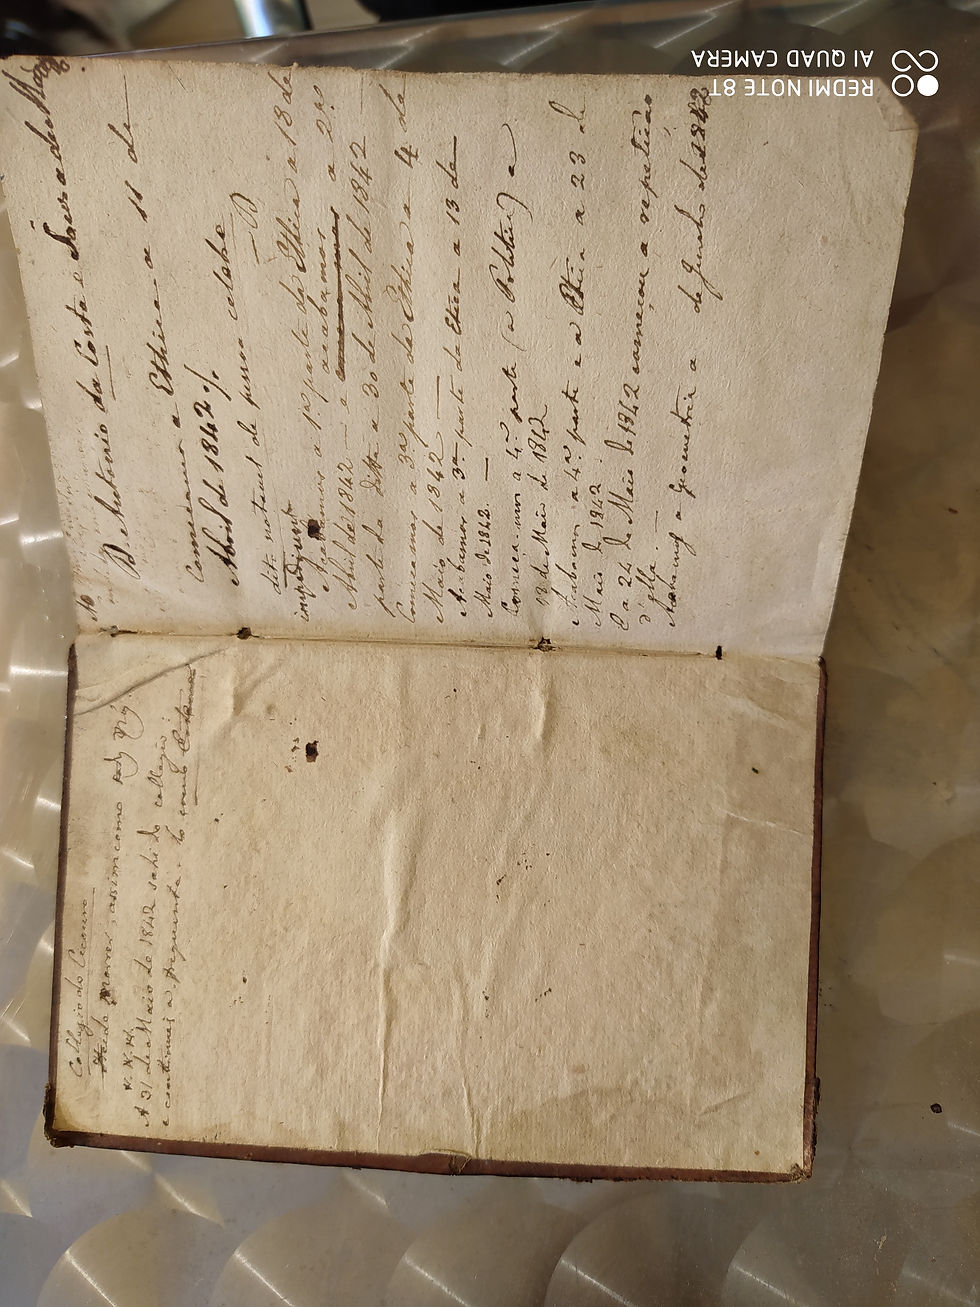 Collegio do
assim como
A 31 de Maio de 1842 sahi do collegio
e continuei a frequentar
De Antonio da Costa e Souza de
Começamos a Ethica a 11 de
Abril de 1842
dit. notavel de pessoa celebre
impedjunt
Acabamos a 1ª parte da Ethica a 18 de
Abril de 1842 — a acabamos a 2ª
parte da ditta a 30 de Abril de 1842
Começamos a 3ª parte da Ethica a 4 de
Maio de 1842 —
Acabamos a 3ª parte da Etica a 13 de
Maio de 1842 —
Começamos a 4ª parte (a Politica) a
13 de Maio de 1842
Acabamos a 4ª parte e a Etica a 23 de
Maio de 1842
E a 24 de Maio de 1842 começou a repetição
d'ella. —
a Geometria a de Junho de 1842
REDMI NOTE 8T
AI QUAD CAMERA